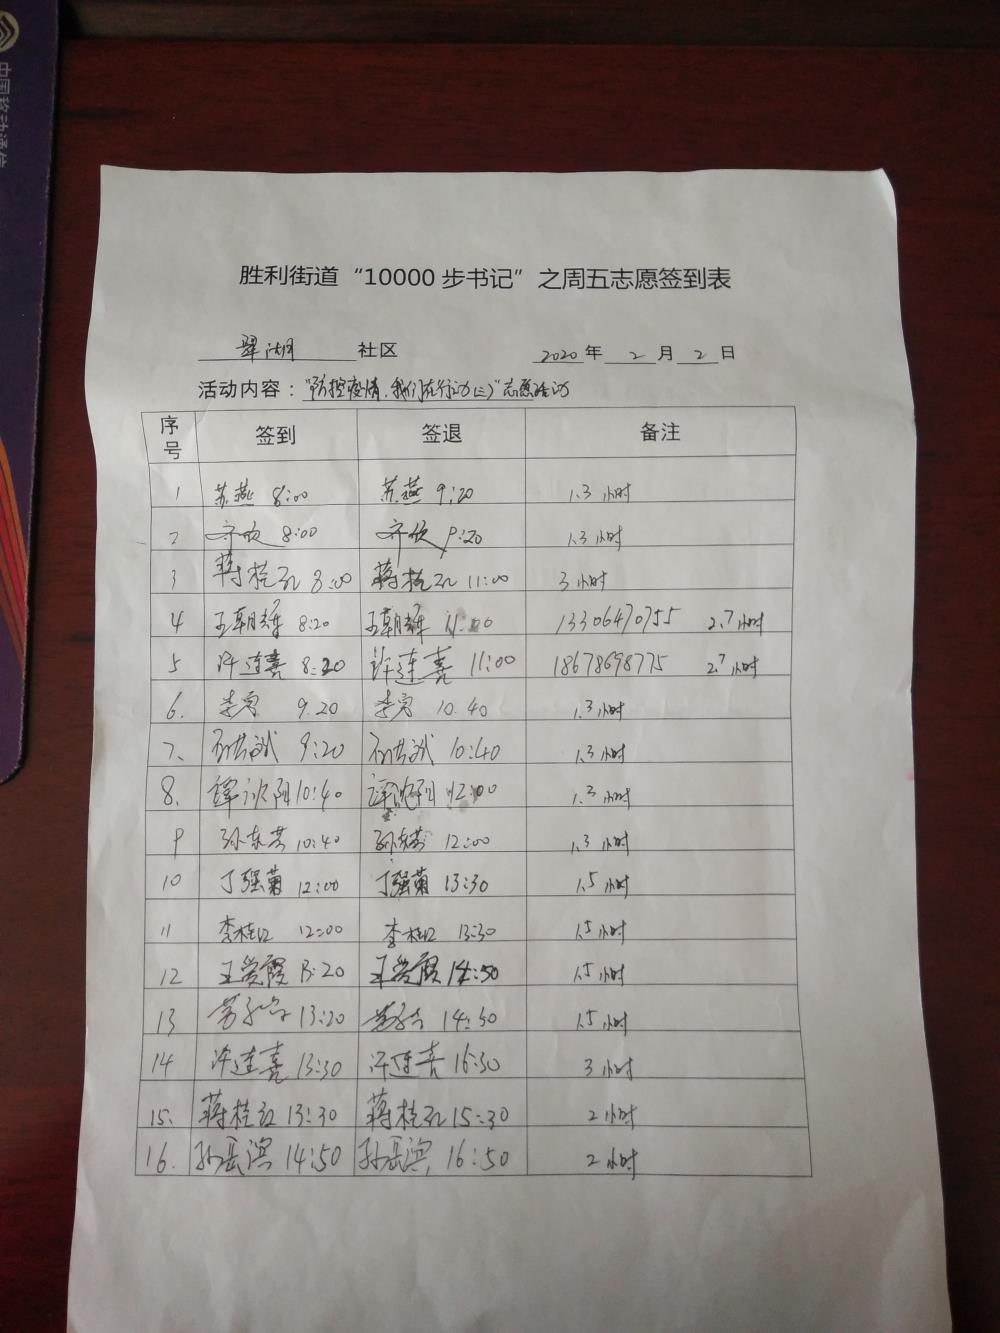 中国移动通信
胜利街道“10000步书记”之周五志愿签到表
翠湖 社区 2020年 2月 2日
活动内容：“防控疫情，我们在行动(三)”志愿活动
序号 签到 签退 备注
1 苏燕 8:00 苏燕 9:20 1.3小时
2 齐欣 8:00 齐欣 9:20 1.3小时
3 蒋桂红 8:00 蒋桂红 11:00 3小时
4 王朝雄 8:20 王朝雄 11:00 13306470755 2.7小时
5 许连喜 8:20 许连喜 11:00 18678698775 2.7小时
6. 李宁 9.20 李宁 10.40 1.3小时
7. 9:20 10:40 1.3小时
8. 10:40 12:00 1.3小时
9 孙东芳 10:40 孙东芳 12:00 1.3小时
10 丁强菊 12:00 丁强菊 13:30 1.5小时
11 李桂红 12:00 李桂红 13:30 1.5小时
12 王爱霞 13:20 王爱霞 14:50 1.5小时
13 13:20 14:30 1.5小时
14 许连喜 13:30 许连喜 16:30 3小时
15. 蒋桂红 13:30 蒋桂红 15:30 2小时
16. 孙岳滨 14:50 孙岳滨 16:50 2小时